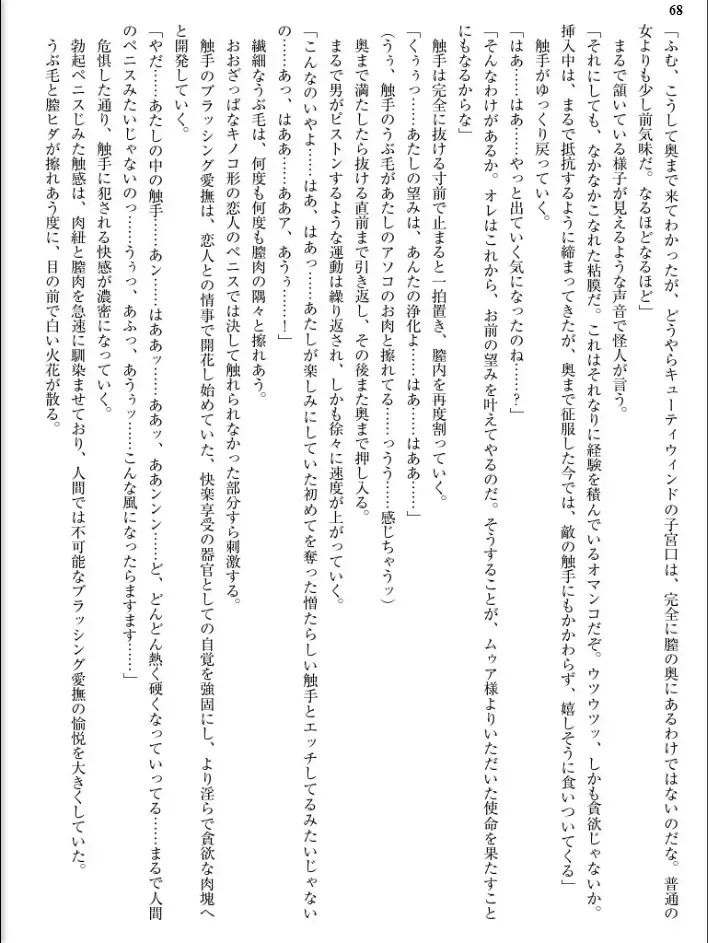 68
「ふむ、こうして奥まで来てわかったが、どうやらキューティウィンドの子宮口は、完全に膣の奥にあるわけではないのだな。普通の
女よりも少し前気味だ。なるほどなるほど」
まるで頷いている様子が見えるような声音で怪人が言う。
「それにしても、なかなかこなれた粘膜だ。これはそれなりに経験を積んでいるオマンコだぞ。ウツウツッ、しかも貪欲じゃないか。
挿入中は、まるで抵抗するように締まってきたが、奥まで征服した今では、敵の触手にもかかわらず、嬉しそうに食いついてくる」
触手がゆっくり戻っていく。
「はあ……はあ……やっと出ていく気になったのね……？」
「そんなわけがあるか。オレはこれから、お前の望みを叶えてやるのだ。そうすることが、ムゥア様よりいただいた使命を果たすこと
にもなるからな」
触手は完全に抜ける寸前で止まると一拍置き、膣内を再度割っていく。
「くぅぅっ……あたしの望みは、あんたの浄化よ……はあ……はああ……」
（うぅ、触手のうぶ毛があたしのアソコのお肉と擦れてる……っうう……感じちゃうッ）
奥まで満たしたら抜ける直前まで引き返し、その後また奥まで押し入る。
まるで男がピストンするような運動は繰り返され、しかも徐々に速度が上がっていく。
「こんなのいやよ……はあ、はあっ……あたしが楽しみにしていた初めてを奪った憎たらしい触手とエッチしてるみたいじゃない
の……あっ、はああ……ああア、あうぅ……！」
繊細なうぶ毛は、何度も何度も膣肉の隅々と擦れあう。
おおざっぱなキノコ形の恋人のペニスでは決して触れられなかった部分すら刺激する。
触手のブラッシング愛撫は、恋人との情事で開花し始めていた、快楽享受の器官としての自覚を強固にし、より淫らで貪欲な肉塊へ
と開発していく。
「やだ……あたしの中の触手……あン……はああッ……ああッ、ああンンン……ど、どんどん熱く硬くなっていってる……まるで人間
のペニスみたいじゃないのっ……うぅっ、あふっ、あうぅッ……こんな風になったらますます……」
危惧した通り、触手に犯される快感が濃密になっていく。
勃起ペニスじみた触感は、肉紐と膣肉を急速に馴染ませており、人間では不可能なブラッシング愛撫の愉悦を大きくしていた。
うぶ毛と膣ヒダが擦れあう度に、目の前で白い火花が散る。